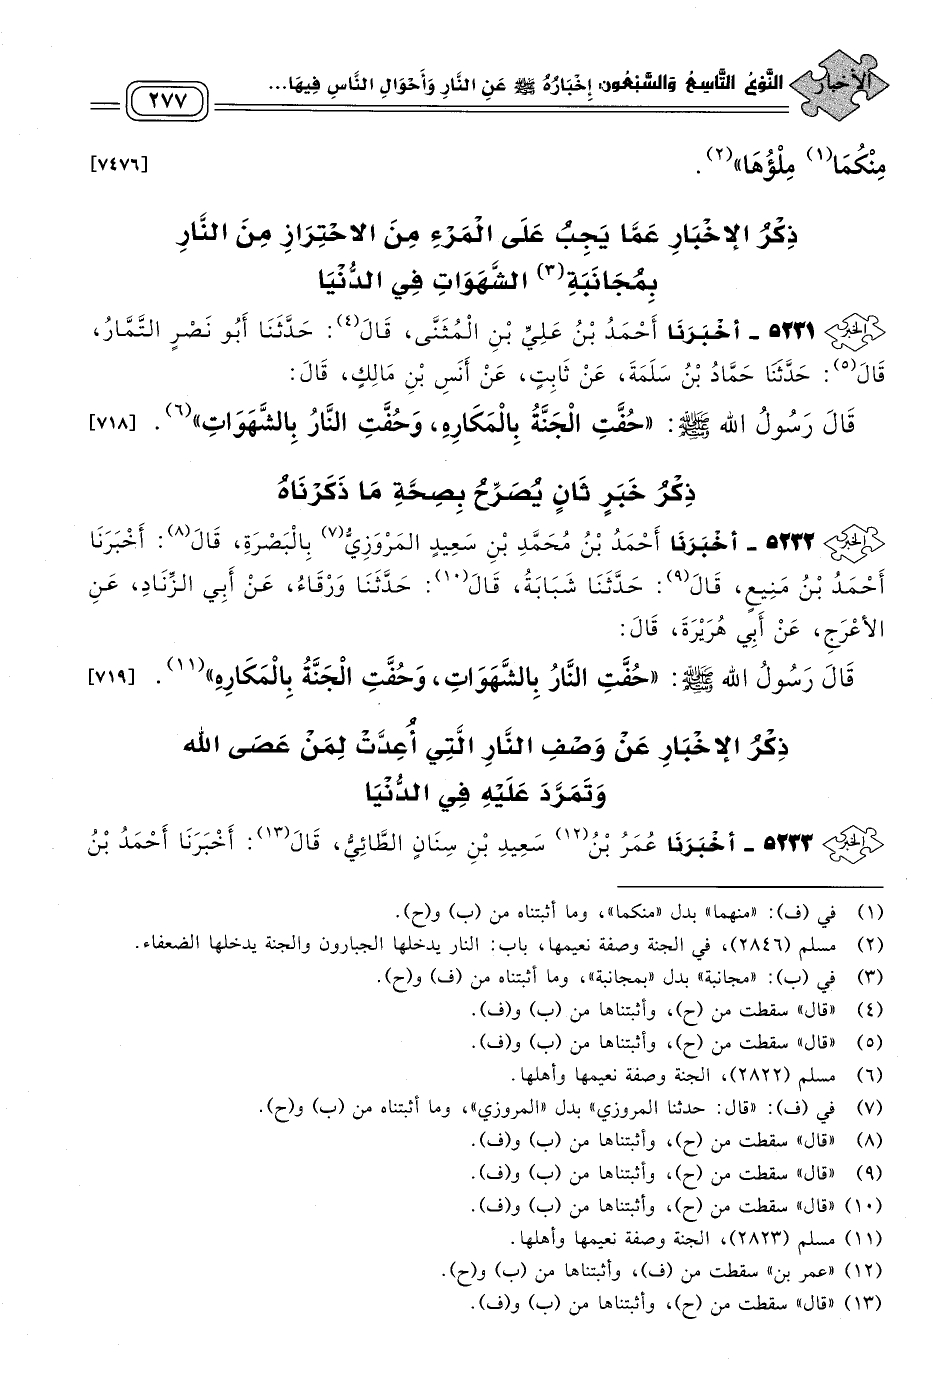 الأخبار النَّوْعُ التَّاسِعُ والسَّبْعُون: إِخْبَارُهُ ﷺ عَنِ النَّارِ وَأَحْوَالِ النَّاسِ فِيهَا... ٢٧٧
مِنْكُمَا(١) مِلْؤُهَا»(٢). [٧٤٧٦]
ذِكْرُ الإِخْبَارِ عَمَّا يَجِبُ عَلَى الْمَرْءِ مِنَ الاحْتِرَازِ مِنَ النَّارِ
بِمُجَانَبَةِ(٣) الشَّهَوَاتِ فِي الدُّنْيَا
٥٢٣١ ـ أَخْبَرَنَا أَحْمَدُ بْنُ عَلِيِّ بْنِ الْمُثَنَّى، قَالَ(٤): حَدَّثَنَا أَبُو نَصْرٍ التَّمَّارُ،
قَالَ(٥): حَدَّثَنَا حَمَّادُ بْنُ سَلَمَةَ، عَنْ ثَابِتٍ، عَنْ أَنَسِ بْنِ مَالِكٍ، قَالَ:
قَالَ رَسُولُ الله ﷺ: «حُفَّتِ الْجَنَّةُ بِالْمَكَارِهِ، وَحُفَّتِ النَّارُ بِالشَّهَوَاتِ»(٦). [٧١٨]
ذِكْرُ خَبَرٍ ثَانٍ يُصَرِّحُ بِصِحَّةِ مَا ذَكَرْنَاهُ
٥٢٣٢ ـ أَخْبَرَنَا أَحْمَدُ بْنُ مُحَمَّدِ بْنِ سَعِيدٍ المَرْوَزِيُّ(٧) بِالْبَصْرَةِ، قَالَ(٨): أَخْبَرَنَا
أَحْمَدُ بْنُ مَنِيعٍ، قَالَ(٩): حَدَّثَنَا شَبَابَةُ، قَالَ(١٠): حَدَّثَنَا وَرْقَاءُ، عَنْ أَبِي الزِّنَادِ، عَنِ
الأَعْرَجِ، عَنْ أَبِي هُرَيْرَةَ، قَالَ:
قَالَ رَسُولُ الله ﷺ: «حُفَّتِ النَّارُ بِالشَّهَوَاتِ، وَحُفَّتِ الْجَنَّةُ بِالْمَكَارِهِ»(١١). [٧١٩]
ذِكْرُ الإِخْبَارِ عَنْ وَصْفِ النَّارِ الَّتِي أُعِدَّتْ لِمَنْ عَصَى الله
وَتَمَرَّدَ عَلَيْهِ فِي الدُّنْيَا
٥٢٣٣ ـ أَخْبَرَنَا عُمَرُ بْنُ(١٢) سَعِيدِ بْنِ سِنَانٍ الطَّائِيُّ، قَالَ(١٣): أَخْبَرَنَا أَحْمَدُ بْنُ
(١) في (ف): «منهما» بدل «منكما»، وما أثبتناه من (ب) و(ح).
(٢) مسلم (٢٨٤٦)، في الجنة وصفة نعيمها، باب: النار يدخلها الجبارون والجنة يدخلها الضعفاء.
(٣) في (ب): «مجانبة» بدل «بمجانبة»، وما أثبتناه من (ف) و(ح).
(٤) «قال» سقطت من (ح)، وأثبتناها من (ب) و(ف).
(٥) «قال» سقطت من (ح)، وأثبتناها من (ب) و(ف).
(٦) مسلم (٢٨٢٢)، الجنة وصفة نعيمها وأهلها.
(٧) في (ف): «قال: حدثنا المروزي» بدل «المروزي»، وما أثبتناه من (ب) و(ح).
(٨) «قال» سقطت من (ح)، وأثبتناها من (ب) و(ف).
(٩) «قال» سقطت من (ح)، وأثبتناها من (ب) و(ف).
(١٠) «قال» سقطت من (ح)، وأثبتناها من (ب) و(ف).
(١١) مسلم (٢٨٢٣)، الجنة وصفة نعيمها وأهلها.
(١٢) «عمر بن» سقطت من (ف)، وأثبتناها من (ب) و(ح).
(١٣) «قال» سقطت من (ح)، وأثبتناها من (ب) و(ف).